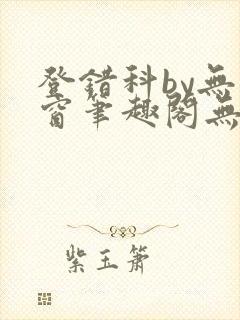 登错科by无
窗笔趣阁无
紫玉箫